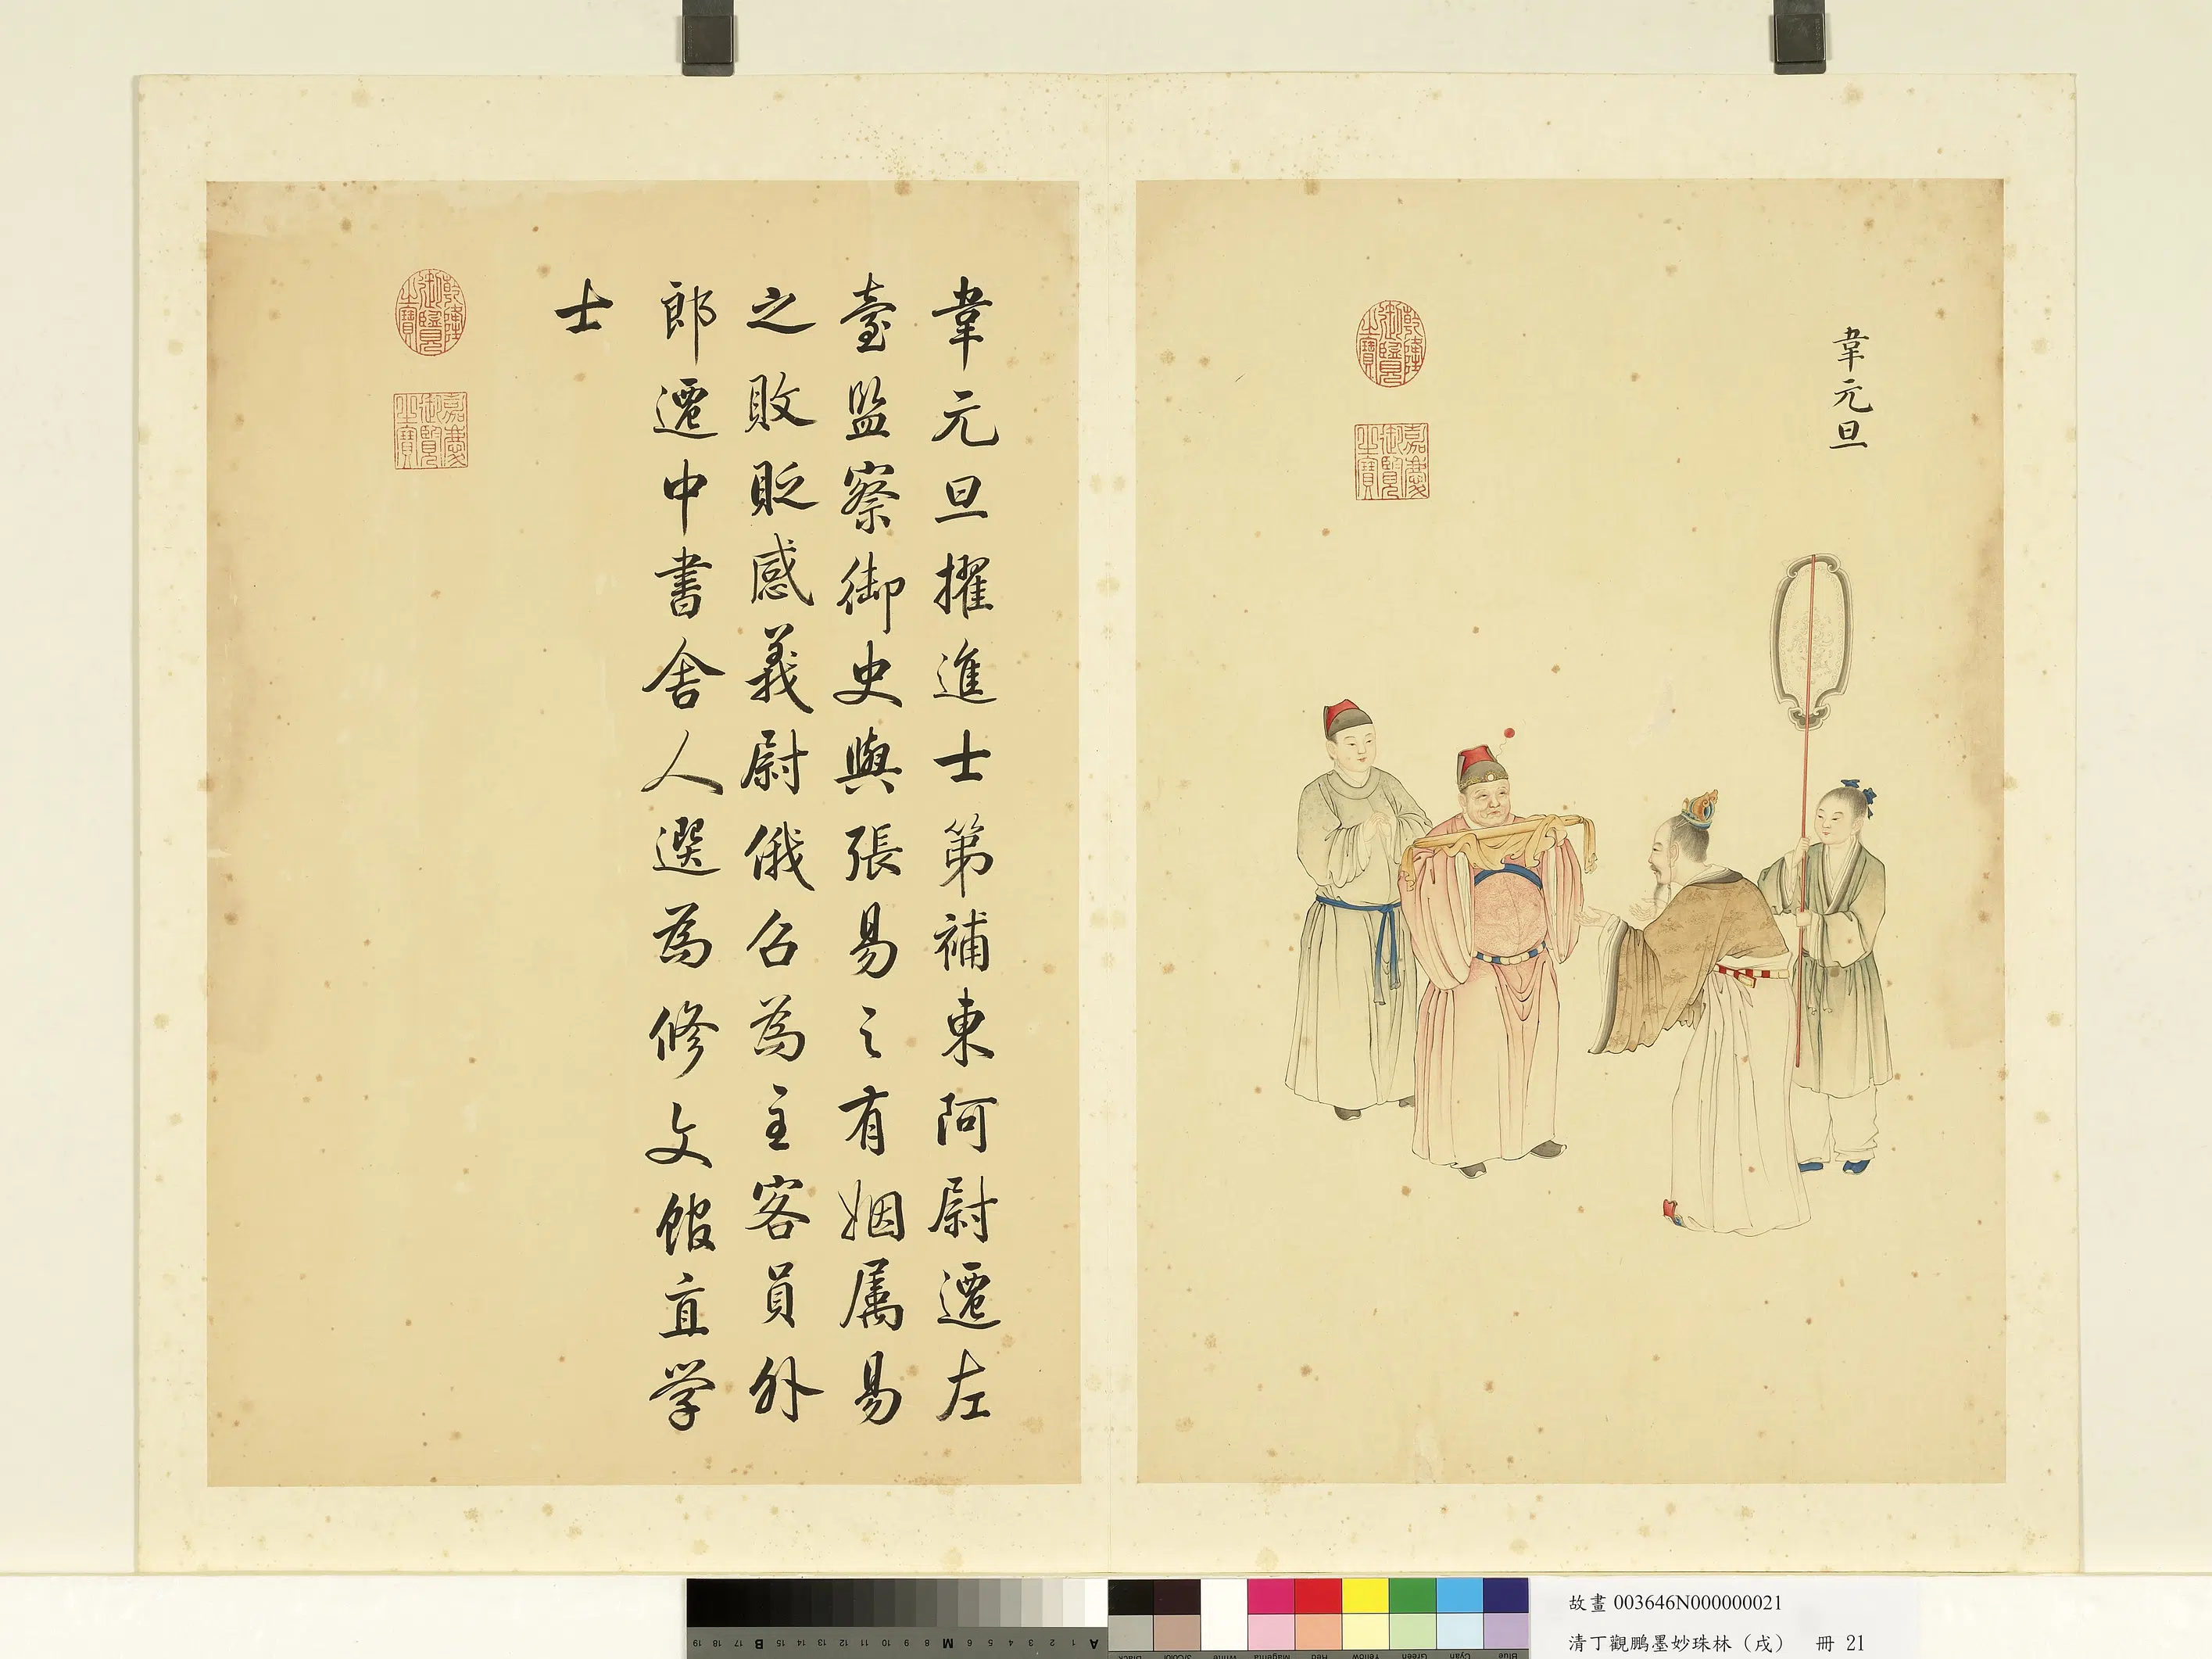 韋元旦
乾隆御覽之寶
嘉慶御覽之寶
韋元旦擢進士第補東阿尉遷左
臺監察御史與張易之有姻属易
之敗貶感義尉俄召為主客員外
郎遷中書舍人選為修文館直学
士
乾隆御覽之寶
嘉慶御覽之寶
故畫 003646N000000021
清丁觀鵬墨妙珠林（戌） 冊 21
A 1 2 3 4 5 6 7 8 M 9 10 11 12 13 14 15 B 17 18 19
Blue Cyan Green Yellow Red Magenta White 3/Color Black